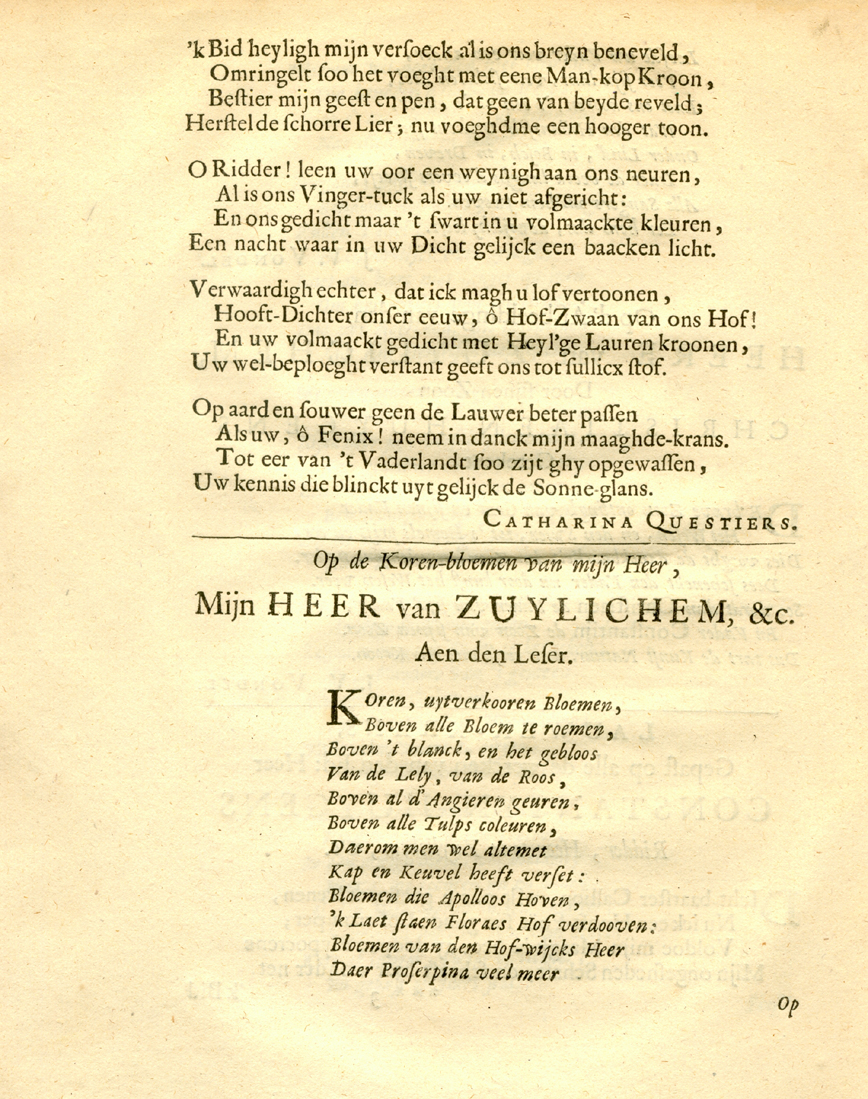 'k Bid heyligh mijn verſoeck al is ons breyn beneveld,
Omringelt ſoo het voeght met eene Man-kop Kroon,
Beſtier mijn geeſt en pen, dat geen van beyde reveld;
Herſtel de ſchorre Lier; nu voeghdme een hooger toon.
O Ridder! leen uw oor een weynigh aan ons neuren,
Al is ons Vinger-tuck als uw niet afgericht:
En ons gedicht maar 't ſwart in u volmaackte kleuren,
Een nacht waar in uw Dicht gelijck een baacken licht.
Verwaardigh echter, dat ick magh u lof vertoonen,
Hooft-Dichter onſer eeuw, ô Hof-Zwaan van ons Hof!
En uw volmaackt gedicht met Heyl'ge Lauren kroonen,
Uw wel-beploeght verſtant geeft ons tot ſullicx ſtof.
Op aard en ſouwer geen de Lauwer beter paſſen
Als uw, ô Fenix! neem in danck mijn maaghde-krans.
Tot eer van 't Vaderlandt ſoo zijt ghy opgewaſſen,
Uw kennis die blinckt uyt gelijck de Sonne-glans.
CATHARINA QUESTIERS.
Op de Koren-bloemen van mijn Heer,
Mijn HEER van ZUYLICHEM, &c.
Aen den Leſer.
KOren, uytverkooren Bloemen,
Boven alle Bloem te roemen,
Boven 't blanck, en het gebloos
Van de Lely, van de Roos,
Boven al d'Angieren geuren,
Boven alle Tulps coleuren,
Daerom men wel altemet
Kap en Keuvel heeft verſet:
Bloemen die Apolloos Hoven,
'k Laet ſtaen Floraes Hof verdooven:
Bloemen van den Hof-wijcks Heer
Daer Proſerpina veel meer
Op